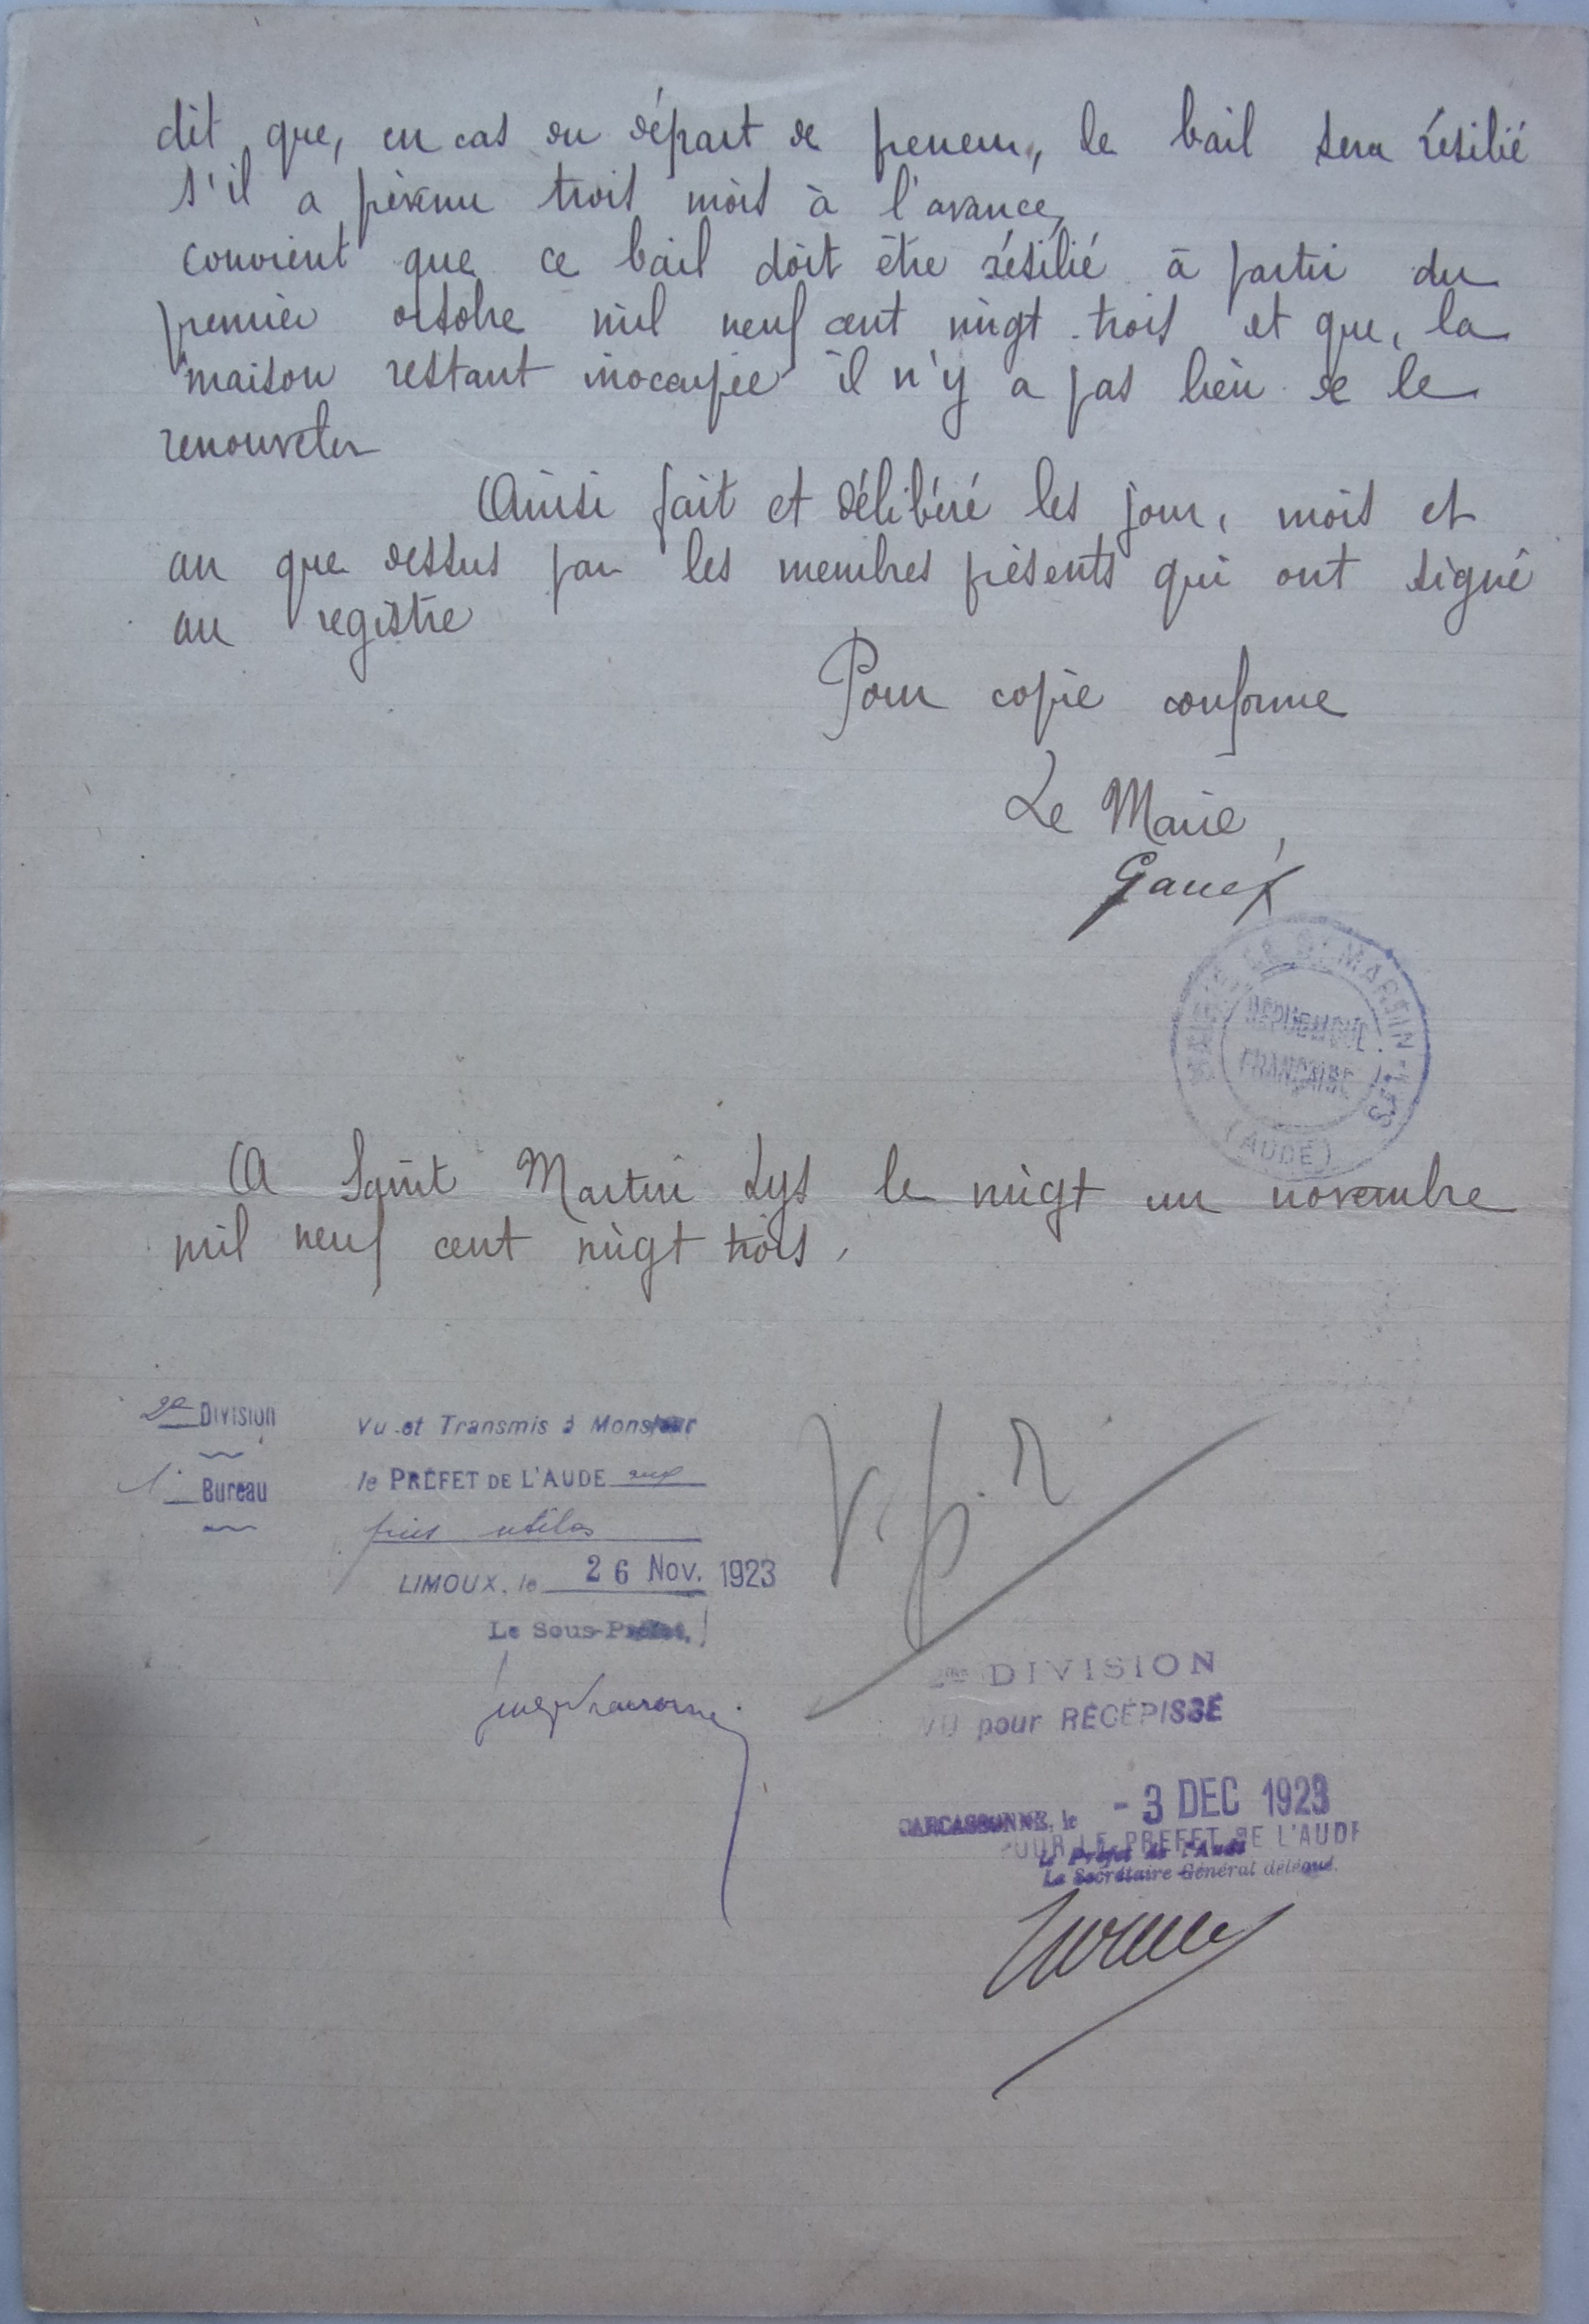 dit que, en cas du départ de preneur, le bail sera résilié
s'il a prévenu trois mois à l'avance,
convient que ce bail doit être résilié à partir du
premier octobre mil neuf cent vingt-trois et que, la
maison restant inoccupée il n'y a pas lieu de le
renouveler
Ainsi fait et délibéré les jour, mois et
an que dessus par les membres présents qui ont signé
au registre
Pour copie conforme
Le Maire,
MAIRIE DE St MARTIN-LYS
RÉPUBLIQUE
FRANÇAISE
(AUDE)
A Saint Martin Lys le vingt un novembre
mil neuf cent vingt trois.
2e DIVISION
1er Bureau
Vu et Transmis à Monsieur
le PRÉFET DE L'AUDE aux
fins utiles
LIMOUX, le 26 Nov. 1923
Le Sous-Préfet,
DIVISION
VU pour RÉCÉPISSÉ
CARCASSONNE, le - 3 DEC 1923
POUR LE PREFET DE L'AUDE
Le Préfet de l'Aude
Le Secrétaire Général délégué.